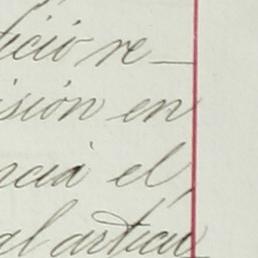 icio re-
isión en
ncia el
al articu